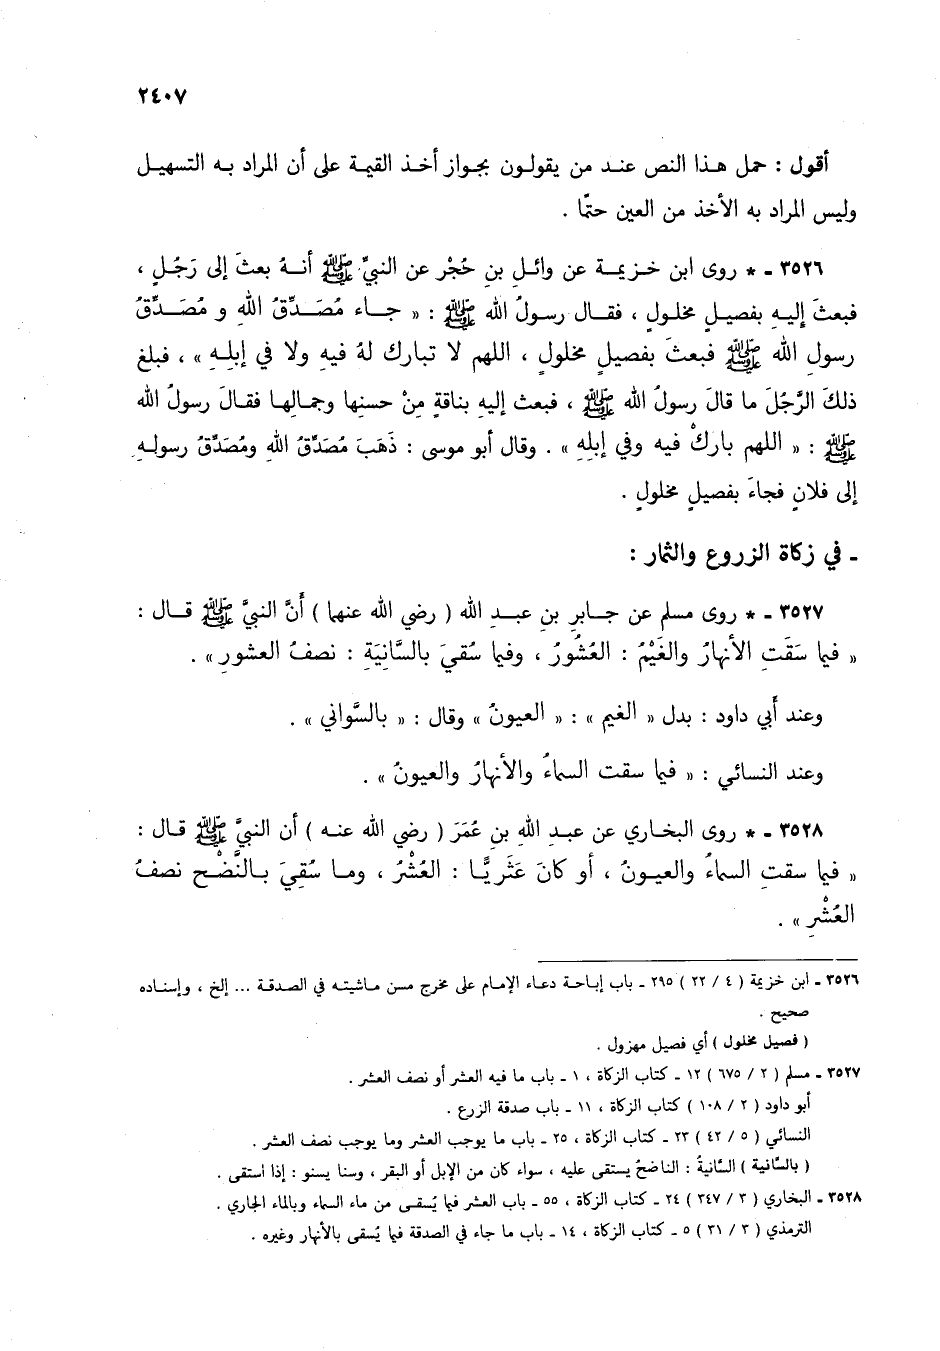 ٢٤٠٧
أقول : حمل هذا النص عند من يقولون بجواز أخذ القيمة على أن المراد به التسهيل
وليس المراد به الأخذ من العين حتمًا .
٣٥٢٦ - * روى ابن خزيمة عن وائلِ بنِ حُجْر عن النبيِّ ﷺ أنهُ بعثَ إلى رَجُلٍ ،
فبعثَ إليهِ بفصيلٍ مخلولٍ ، فقال رسولُ الله ﷺ : « جاء مُصَدِّقُ اللهِ و مُصَدِّقُ
رسولِ الله ﷺ فبعثَ بفصيلٍ مخلولٍ ، اللهم لا تبارك لهُ فيهِ ولا في إبلِهِ » ، فبلغ
ذلكَ الرَّجُلَ ما قالَ رسولُ الله ﷺ ، فبعث إليهِ بناقةٍ مِنْ حسنِها وجمالِها فقالَ رسولُ الله
ﷺ : « اللهم باركْ فيه وفي إبلِهِ » . وقال أبو موسى : ذَهَبَ مُصَدِّقُ اللهِ ومُصَدِّقُ رسولِهِ
إلى فلانٍ فجاءَ بفصيلٍ مخلولٍ .
- في زكاة الزروع والثمار :
٣٥٢٧ - * روى مسلم عن جابرِ بنِ عبدِ الله ( رضي الله عنهما ) أَنَّ النبيَّ ﷺ قال :
« فيما سَقَتِ الأنهارُ والغَيْمُ : العُشُورُ ، وفيما سُقيَ بالسَّانِيَةِ : نصفُ العشورِ » .
وعند أَبي داود : بدل « الغيم » : « العيونُ » وقال : « بالسَّواني » .
وعند النسائي : « فيما سقت السماءُ والأنهارُ والعيونُ » .
٣٥٢٨ - * روى البخاري عن عبدِ اللهِ بنِ عُمَرَ ( رضي الله عنه ) أن النبيَّ ﷺ قال :
« فيما سقتِ السماءُ والعيونُ ، أو كانَ عَثَريًّا : العُشْرُ ، وما سُقِيَ بالنَّضْحِ نصفُ
العُشْرِ » .
٣٥٢٦ - ابن خزيمة ( ٤ / ٢٢ ) ٢٩٥ - باب إباحة دعاء الإمام على مخرج مسن ماشيته في الصدقة ... إلخ ، وإسناده
صحيح .
( فصيل مخلول ) أي فصيل مهزول .
٣٥٢٧ - مسلم ( ٢ / ٦٧٥ ) ١٢ - كتاب الزكاة ، ١ - باب ما فيه العشر أو نصف العشر .
أبو داود ( ٢ / ١٠٨ ) كتاب الزكاة ، ١١ - باب صدقة الزرع .
النسائي ( ٥ / ٤٢ ) ٢٣ - كتاب الزكاة ، ٢٥ - باب ما يوجب العشر وما يوجب نصف العشر .
( بالسَّانية ) السَّانيةُ : الناضحُ يستقى عليه ، سواء كان من الإبل أو البقر ، وسنا يسنو : إذا استقى .
٣٥٢٨ - البخاري ( ٣ / ٣٤٧ ) ٢٤ - كتاب الزكاة ، ٥٥ - باب العشر فيما يُسقى من ماء السماء وبالماء الجاري .
الترمذي ( ٣ / ٣١ ) ٥ - كتاب الزكاة ، ١٤ - باب ما جاء في الصدقة فيما يُسقى بالأنهار وغيره .